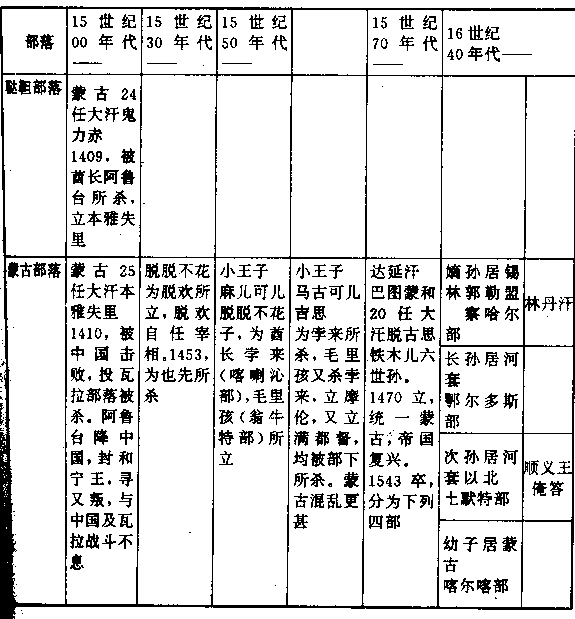 部落
15世纪
00年代
——
15世纪
30年代
——
15世纪
50年代
——
15世纪
70年代
——
16世纪
40年代——
鞑靼部落
蒙古24
任大汗鬼
力赤
1409，被
酋长阿鲁
台所杀，
立本雅失
里
蒙古部落
蒙古25
任大汗本
雅失里
1410，被
中国击
败，投瓦
拉部落被
杀。阿鲁
台降中
国，封和
宁王，寻
又叛，与
中国及瓦
拉战斗不
息
脱脱不花
为脱欢所
立，脱欢
自任宰
相。1453，
为也先所
杀
小王子
麻儿可儿
脱脱不花
子，为酋
长孛来
（喀喇沁
部），毛里
孩（翁牛
特部）所
立
小王子
马古可儿
吉思
为孛来所
杀，毛里
孩又杀孛
来，立摩
伦，又立
满都鲁，
均被部下
所杀。蒙
古混乱更
甚
达延汗
巴图蒙和
20任大
汗脱古思
铁木儿六
世孙。
1470立，
统一蒙
古，帝国
复兴。
1543卒，
分为下列
四部
嫡孙居锡
林郭勒盟
察哈尔
部
林丹汗
长孙居河
套
鄂尔多斯
部
次孙居河
套以北
土默特部
顺义王
俺答
幼子居蒙
古
喀尔喀部